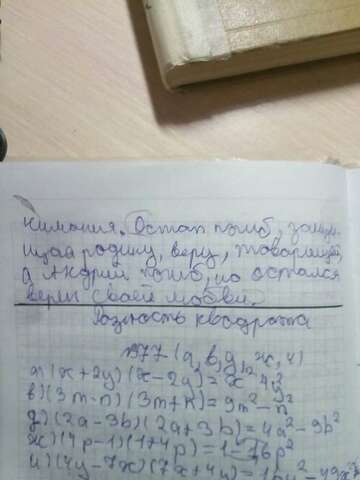 нимания. Остап погиб, защи-
щая родину, веру, товарищей,
а Андрий погиб, но остался
верен своей любви.
Разность квадрата
№977 (а, в, д, ж, и)
а) (x + 2y) (x - 2y) = x² 4y²
в) (3m-n) (3m+n) = 9m² - n²
д) (2a - 3b) (2a + 3b) = 4a² - 9b²
ж) (4p - 1) (1 + 4p) = 1 - 16p²
и) (4y - 7x) (7x + 4y) = 16y² - 49x²